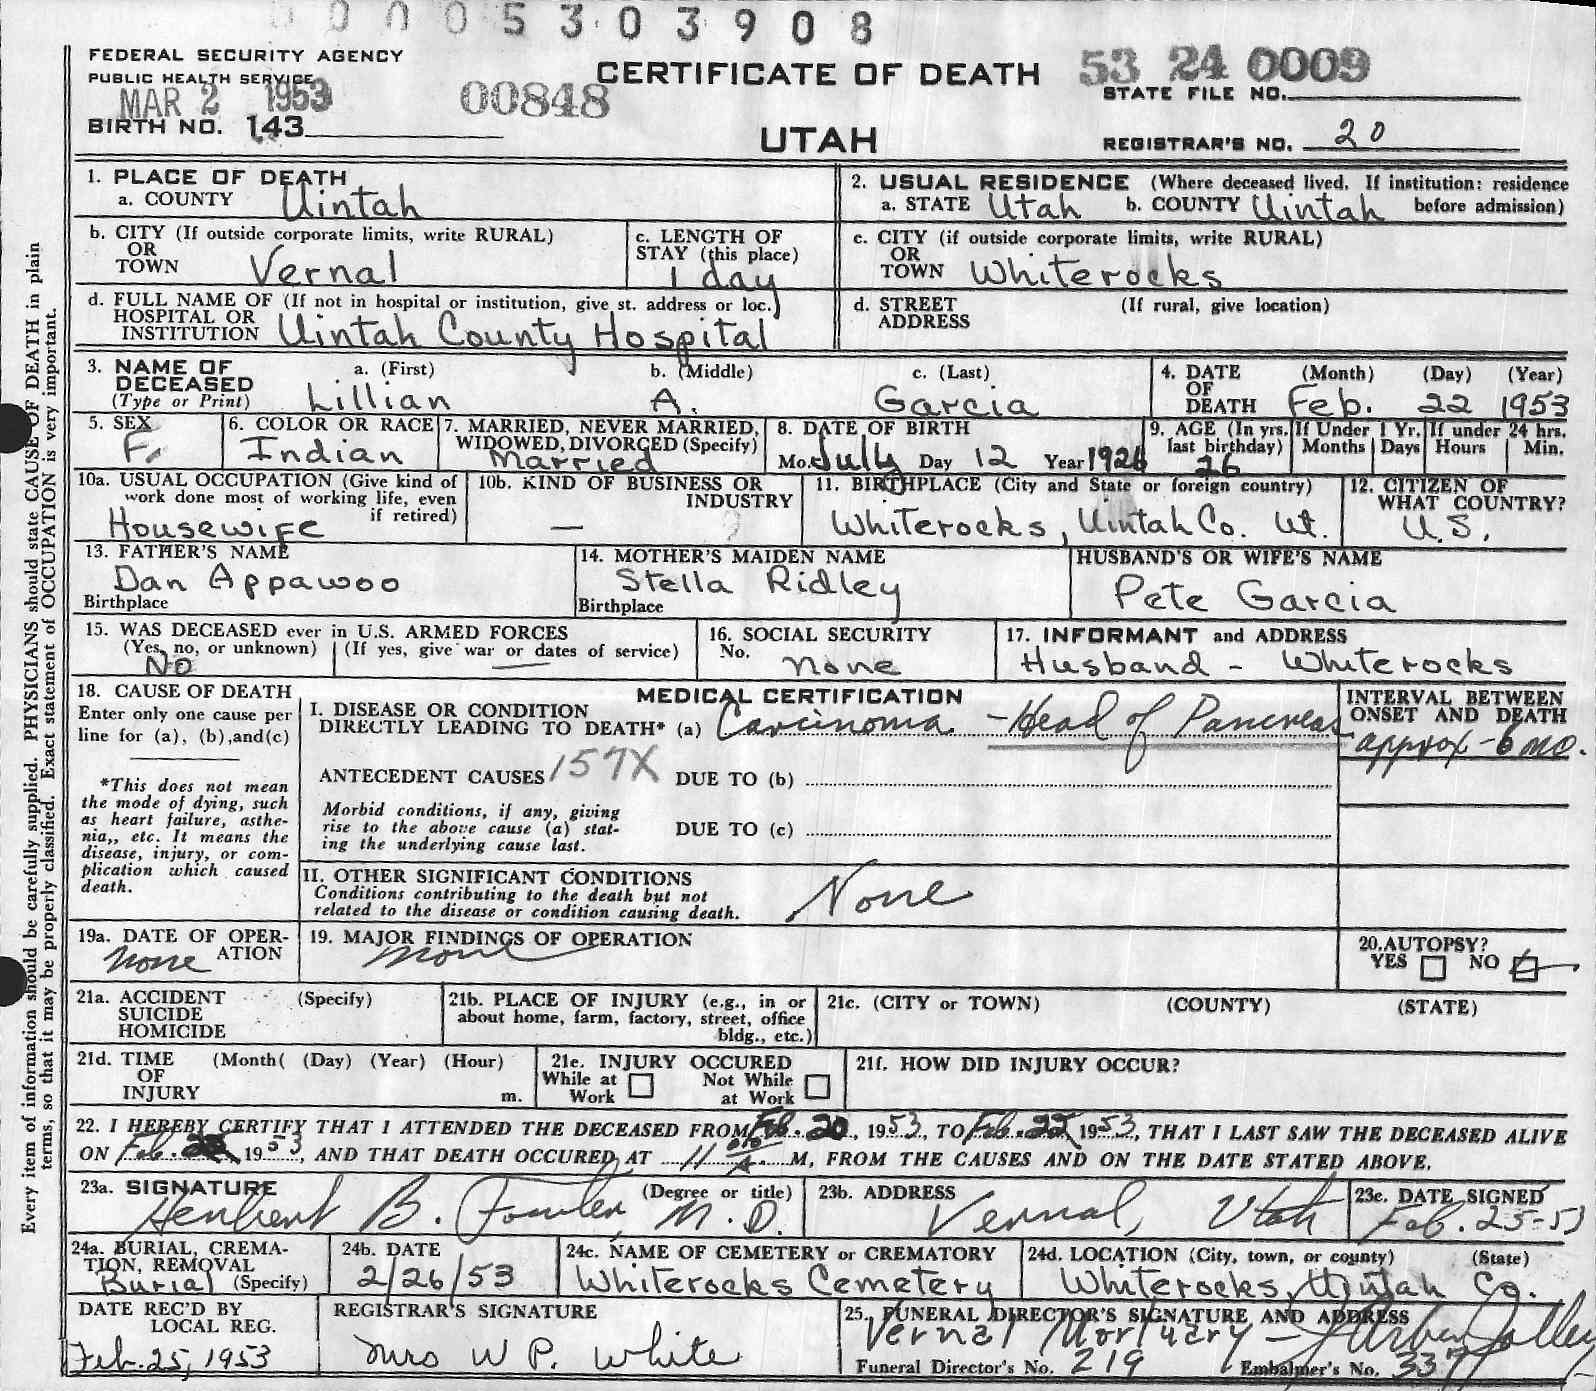 0 0 0 5 3 0 3 9 0 8
FEDERAL SECURITY AGENCY
PUBLIC HEALTH SERVICE
MAR 2 1953
00848
CERTIFICATE OF DEATH
53 24 0009
STATE FILE NO.
BIRTH NO. 143
UTAH
REGISTRAR'S NO. 20
1. PLACE OF DEATH
a. COUNTY Uintah
2. USUAL RESIDENCE (Where deceased lived. If institution: residence before admission)
a. STATE Utah b. COUNTY Uintah
b. CITY (If outside corporate limits, write RURAL)
OR
TOWN Vernal
c. LENGTH OF
STAY (this place)
1 day
c. CITY (if outside corporate limits, write RURAL)
OR
TOWN Whiterocks
d. FULL NAME OF (If not in hospital or institution, give st. address or loc.)
HOSPITAL OR
INSTITUTION Uintah County Hospital
d. STREET (If rural, give location)
ADDRESS
3. NAME OF DECEASED (Type or Print)
a. (First) b. (Middle) c. (Last)
Lillian A. Garcia
4. DATE OF DEATH (Month) (Day) (Year)
Feb. 22 1953
5. SEX
F.
6. COLOR OR RACE
Indian
7. MARRIED, NEVER MARRIED,
WIDOWED, DIVORCED (Specify)
Married
8. DATE OF BIRTH
Mo. July Day 12 Year 1926
9. AGE (In yrs. last birthday)
26
If Under 1 Yr. Months Days
If under 24 hrs. Hours Min.
10a. USUAL OCCUPATION (Give kind of
work done most of working life, even
if retired)
Housewife
10b. KIND OF BUSINESS OR
INDUSTRY
—
11. BIRTHPLACE (City and State or foreign country)
Whiterocks, Uintah Co. Ut.
12. CITIZEN OF
WHAT COUNTRY?
U.S.
13. FATHER'S NAME
Dan Appawoo
Birthplace
14. MOTHER'S MAIDEN NAME
Stella Ridley
Birthplace
HUSBAND'S OR WIFE'S NAME
Pete Garcia
15. WAS DECEASED ever in U.S. ARMED FORCES
(Yes, no, or unknown) (If yes, give war or dates of service)
No —
16. SOCIAL SECURITY
No. none
17. INFORMANT and ADDRESS
Husband - Whiterocks
18. CAUSE OF DEATH
Enter only one cause per
line for (a), (b),and(c)
*This does not mean
the mode of dying, such
as heart failure, asthe-
nia,, etc. It means the
disease, injury, or com-
plication which caused
death.
MEDICAL CERTIFICATION
I. DISEASE OR CONDITION
DIRECTLY LEADING TO DEATH* (a) Carcinoma - Head of Pancreas
INTERVAL BETWEEN
ONSET AND DEATH
approx - 6 mo.
ANTECEDENT CAUSES 157X DUE TO (b)
Morbid conditions, if any, giving
rise to the above cause (a) stat-
ing the underlying cause last.
DUE TO (c)
II. OTHER SIGNIFICANT CONDITIONS
Conditions contributing to the death but not
related to the disease or condition causing death.
None
19a. DATE OF OPER-
ATION
none
19. MAJOR FINDINGS OF OPERATION
none
20. AUTOPSY?
YES NO
21a. ACCIDENT (Specify)
SUICIDE
HOMICIDE
21b. PLACE OF INJURY (e.g., in or
about home, farm, factory, street, office
bldg., etc.)
21c. (CITY or TOWN) (COUNTY) (STATE)
21d. TIME (Month( (Day) (Year) (Hour)
OF
INJURY m.
21e. INJURY OCCURED
While at Work Not While at Work
21f. HOW DID INJURY OCCUR?
22. I HEREBY CERTIFY THAT I ATTENDED THE DECEASED FROM Feb. 20, 1953, TO Feb. 22, 1953, THAT I LAST SAW THE DECEASED ALIVE
ON Feb. 1953, AND THAT DEATH OCCURED AT 11 A. M, FROM THE CAUSES AND ON THE DATE STATED ABOVE.
23a. SIGNATURE (Degree or title)
Herbert B. Fowler M.D.
23b. ADDRESS
Vernal, Utah
23c. DATE SIGNED
Feb. 25-53
24a. BURIAL, CREMA-
TION, REMOVAL
Burial (Specify)
24b. DATE
2/26/53
24c. NAME OF CEMETERY or CREMATORY
Whiterocks Cemetery
24d. LOCATION (City, town, or county) (State)
Whiterocks, Uintah Co.
DATE REC'D BY
LOCAL REG.
Feb. 25, 1953
REGISTRAR'S SIGNATURE
Mrs W P. White
25. FUNERAL DIRECTOR'S SIGNATURE AND ADDRESS
Vernal Mortuary -
Funeral Director's No. 219 Embalmer's No. 337
Every item of information should be carefully supplied. PHYSICIANS should state CAUSE OF DEATH in plain
terms, so that it may be properly classified. Exact statement of OCCUPATION is very important.